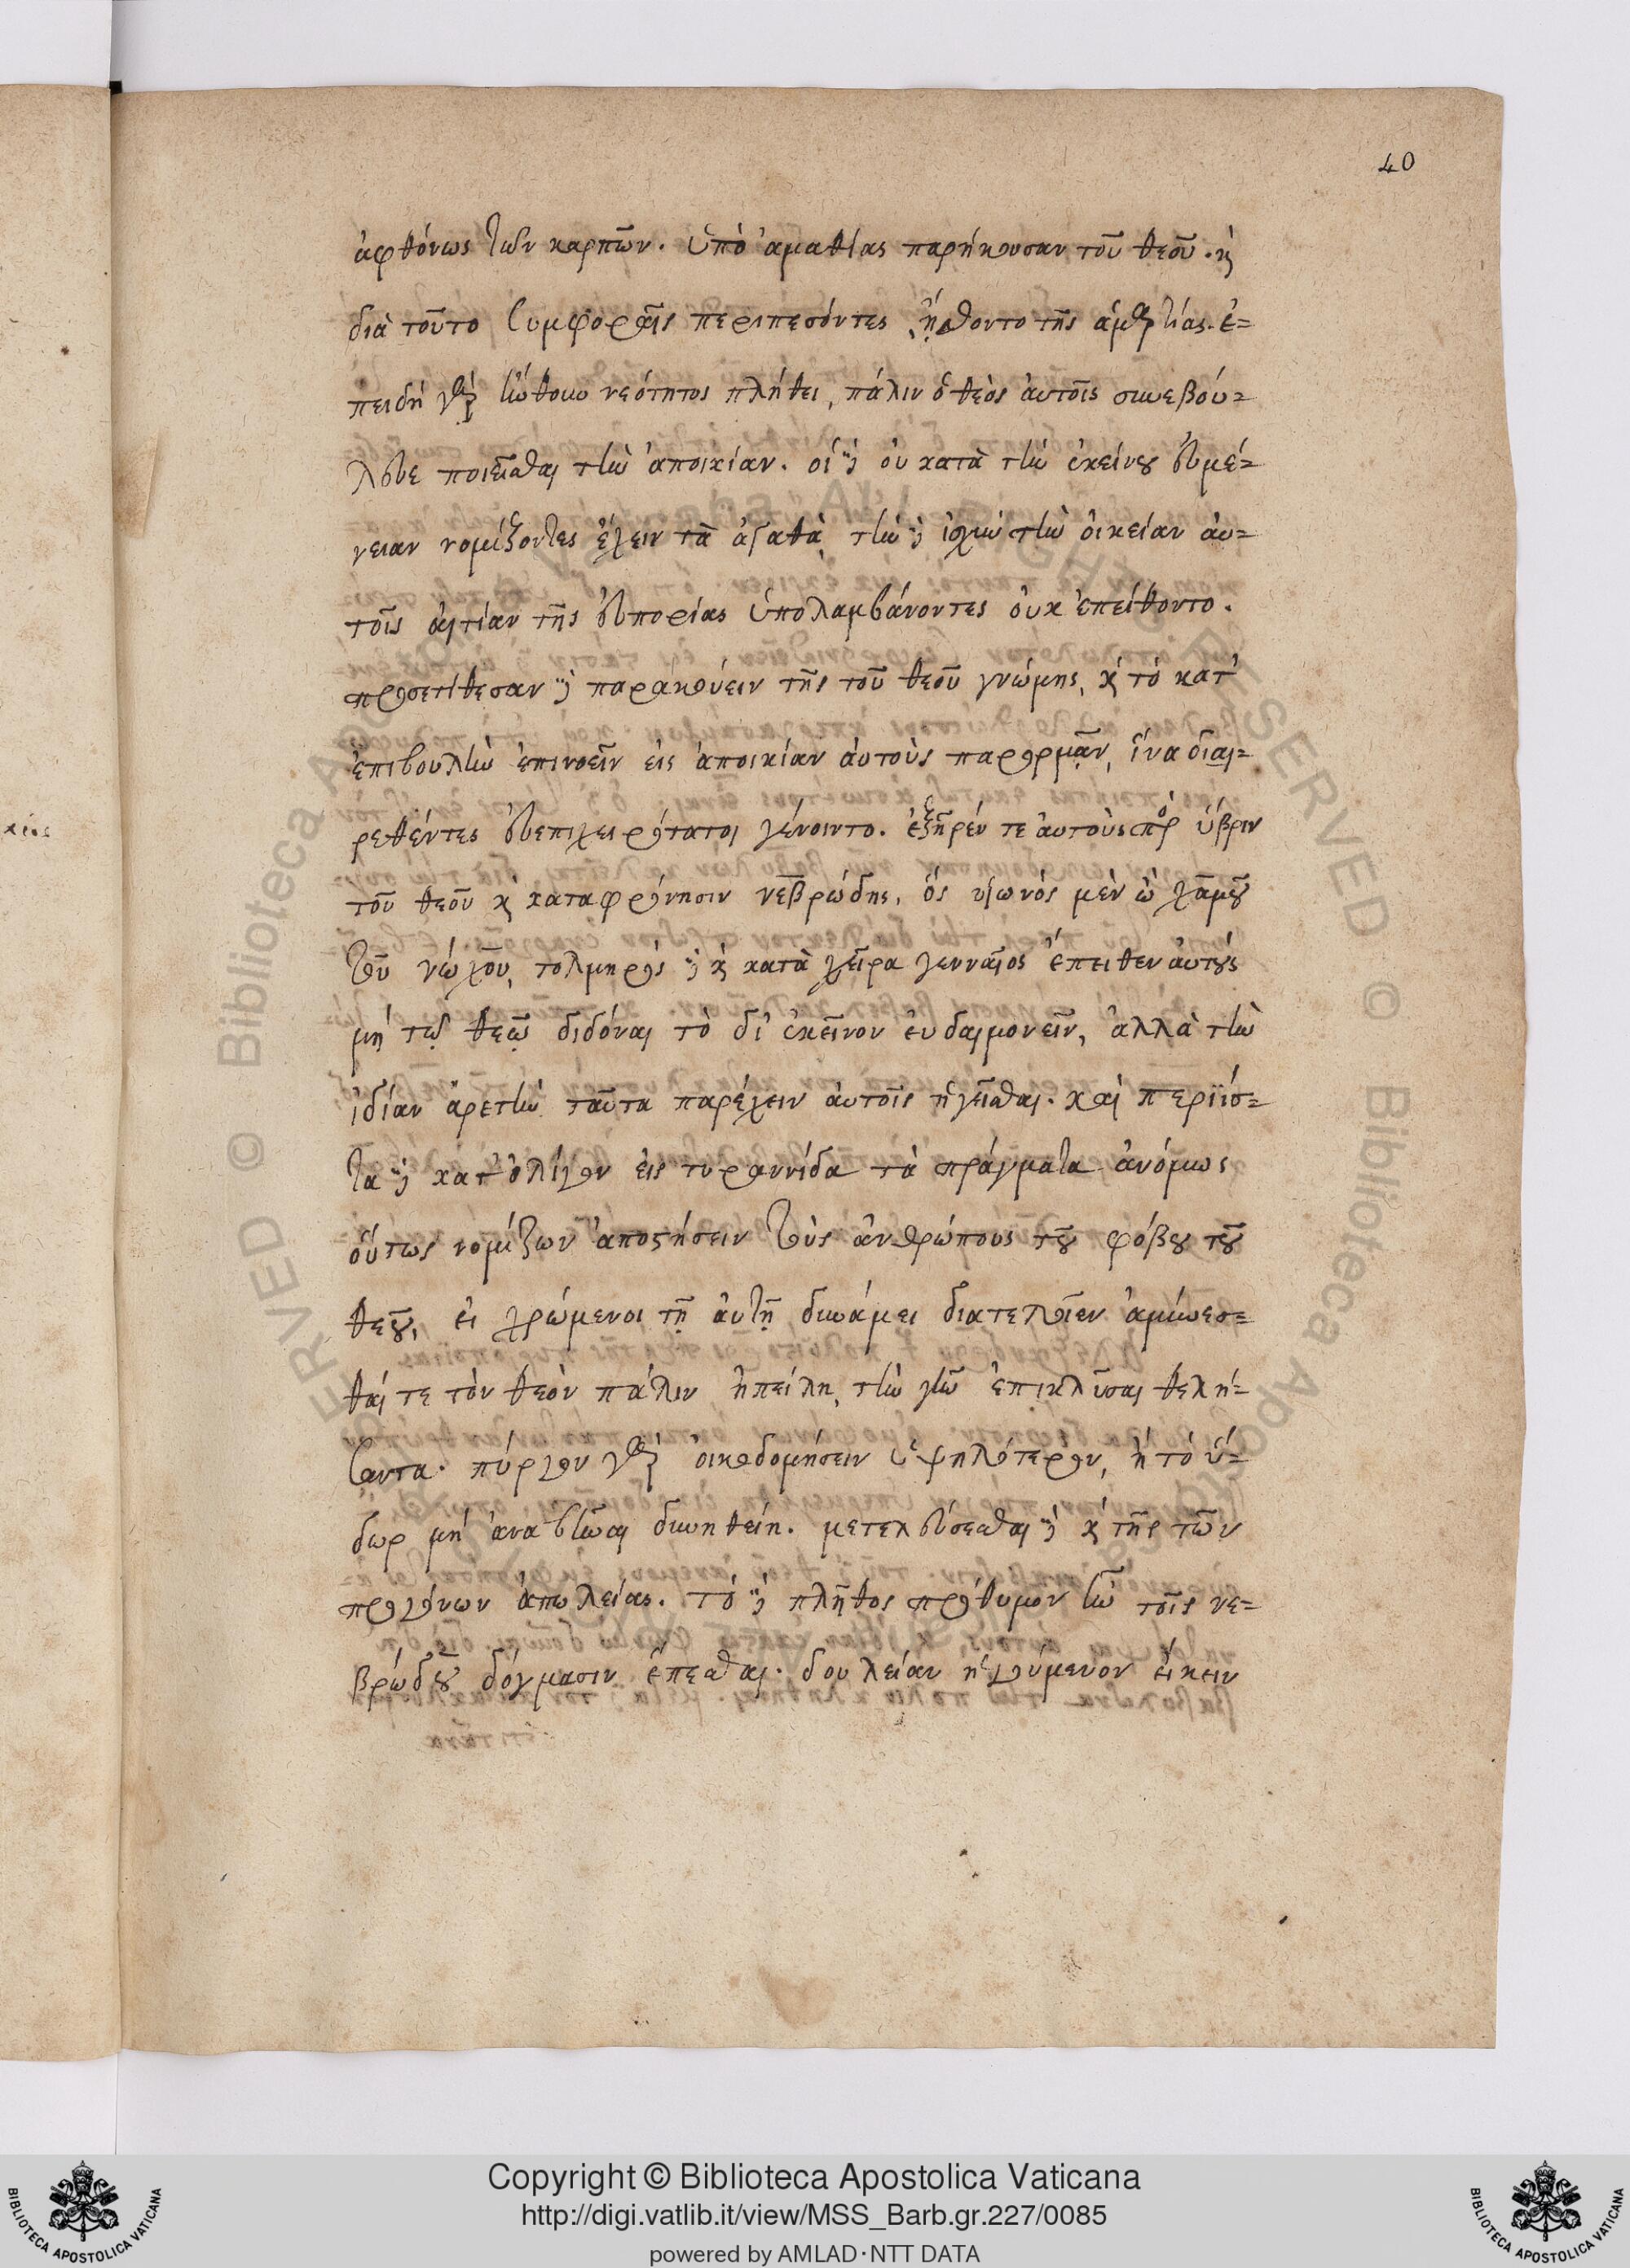 40
ἀφθόνως τῶν καρπῶν. ὑπὸ ἀμαθίας παρήκουσαν τοῦ θεοῦ. κ̀
διὰ τοῦτο συμφοραῖς περιπεσόντες, ᾔσθοντο τῆς ἁμαρτίας. ἐ=
πειδὴ γὰρ ἤνθουν νεότητος πλήθει, πάλιν ὁ θεὸς αὐτοῖς συνεβού=
λευε ποιεῖσθαι τὴν ἀποικίαν. οἱ δὲ οὐ κατὰ τὴν ἐκείνου εὐμέ=
νειαν νομίζοντες ἔχειν τὰ ἀγαθὰ, τὴν δὲ ἰσχὺν τὴν οἰκείαν αὐ=
τοῖς αἰτίαν τῆς εὐπορίας ὑπολαμβάνοντες οὐκ ἐπείθοντο.
προσετίθεσαν δὲ παρακούειν τῆς τοῦ θεοῦ γνώμης, κ̀ τὸ κατ'
ἐπιβουλὴν ἐπινοεῖν εἰς ἀποικίαν αὐτοὺς παρορμᾶν, ἵνα διαι=
ρεθέντες εὐεπιχειρότατοι γένοιντο. ἐξῆρέν τε αὐτοὺς πρὸς ὕβριν
τοῦ θεοῦ κ̀ καταφρόνησιν νεβρώδης, ὃς υἱωνὸς μὲν ὢ χάμου
τοῦ νώχου, τολμηρὸς δὲ κ̀ κατὰ χεῖρα γενναῖος ἔπειθεν αὐτοὺς
μὴ τῷ θεῷ διδόναι τὸ δι' ἐκεῖνον εὐδαιμονεῖν, ἀλλὰ τὴν
ἰδίαν ἀρετὴν ταῦτα παρέχειν αὐτοῖς ἡγεῖσθαι. καὶ περιίσ=
τα δὲ κατ' ὀλίγον εἰς τυραννίδα τὰ πράγματα ἀνόμως
οὕτως νομίζων ἀποστήσειν τοὺς ἀνθρώπους τοῦ φόβου τοῦ
θεοῦ, εἰ χρώμενοι τῇ αὐτῇ δυνάμει διατελοῖεν ἀμύνεσ=
θαί τε τὸν θεὸν πάλιν ἠπείλη, τὴν γῆν ἐπικλῦσαι θελή=
σαντα. πύργον γὰρ οἰκοδομήσειν ὑψηλότερον, ἢ τὸ ὕ=
δωρ μὴ ἀναβῆναι δυνηθείη. μετελεύσεσθαι δὲ κ̀ τῆς τῶν
προγόνων ἀπωλείας. τὸ δὲ πλῆθος πρόθυμον ἦν τοῖς νε=
βρώδου δόγμασιν ἕπεσθαι. δουλείαν ἡγούμενον εἴκειν
Copyright © Biblioteca Apostolica Vaticana
http://digi.vatlib.it/view/MSS_Barb.gr.227/0085
powered by AMLAD·NTT DATA
BIBLIOTECA APOSTOLICA VATICANA
BIBLIOTECA APOSTOLICA VATICANA